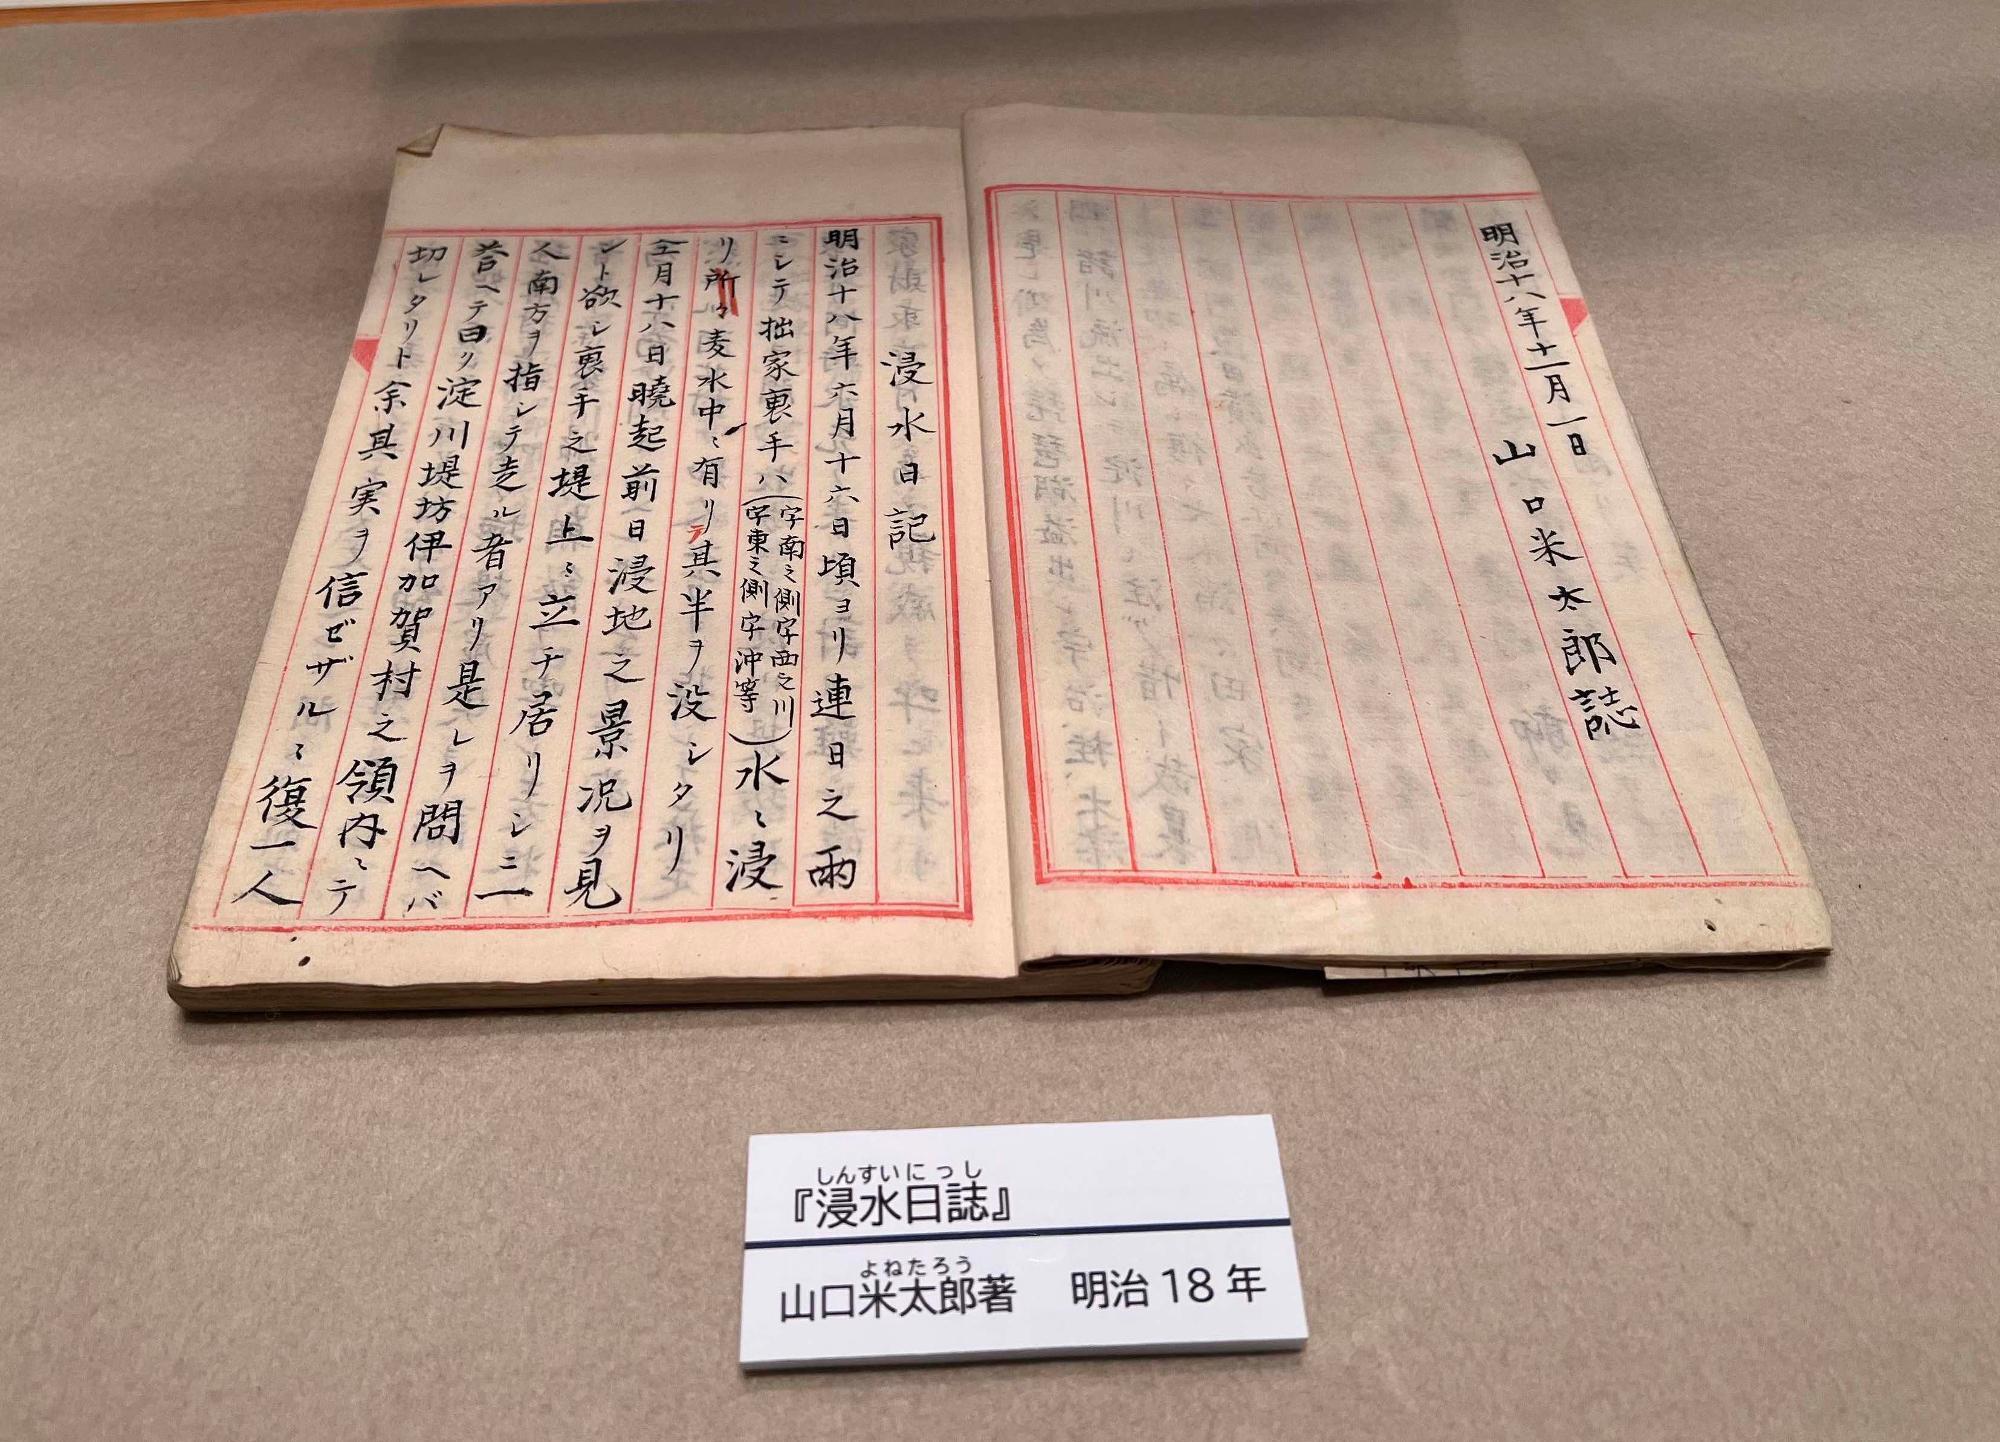 明治十八年十一月一日
山口米太郎誌
浸水日記
明治十八年六月十六日頃ヨリ連日之雨
ニシテ拙家裏手ハ(字南之側字西之川字東之側字沖等)水ニ浸
リ所々麦水中ニ有リテ其半ヲ没シタリ
仝月十八日曉起前日浸地之景況ヲ見
ント欲シ裏手之堤上ニ立チ居リシニ一
人南方ヲ指シテ走ル者アリ是レヲ問ヘバ
答ヘテ曰ク淀川堤坊伊加賀村之領内ニテ
切レタリト余其実ヲ信ゼザルニ復一人
しんすいにっし
『浸水日誌』
よねたろう
山口米太郎著 明治18年